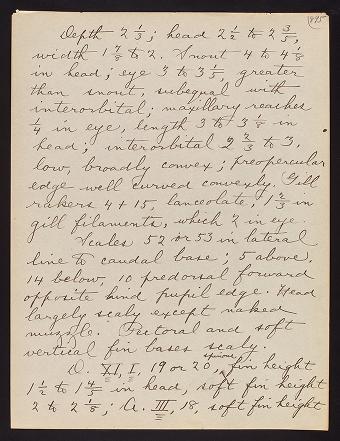 895
Depth 2 1/3; head 2 1/2 to 2 3/5,
width 1 7/8 to 2. Snout 4 to 4 1/8
in head; eye 3 to 3 1/5, greater
than snout, subequal with
interorbital; maxillary reaches
1/4 in eye, length 3 to 3 1/8 in
head; interorbital 2 2/3 to 3,
low, broadly convex; preopercular
edge well curved convexly. Gill
rakers 4 + 15, lanceolate, 1 2/3 in
gill filaments, which 2 in eye.
Scales 52 or 53 in lateral
line to caudal base; 5 above,
14 below, 10 predorsal forward
opposite hind pupil edge. Head
largely scaly except naked
muzzle. Pectoral and soft
vertical fin bases scaly.
D. XI, I, 19 or 20, spinous fin height
1 1/2 to 1 4/5 in head, soft fin height
2 to 2 1/8; A. III, 18, soft fin height